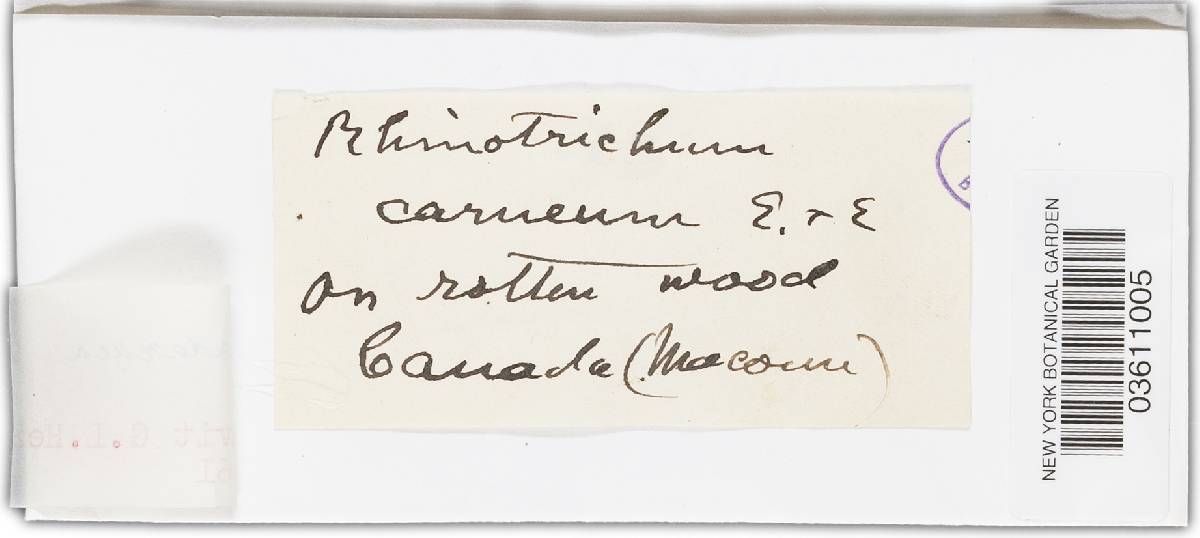 Rhinotrichum
carneum E. & E
on rotten wood
Canada (Macoun)
NEW YORK BOTANICAL GARDEN
03611005